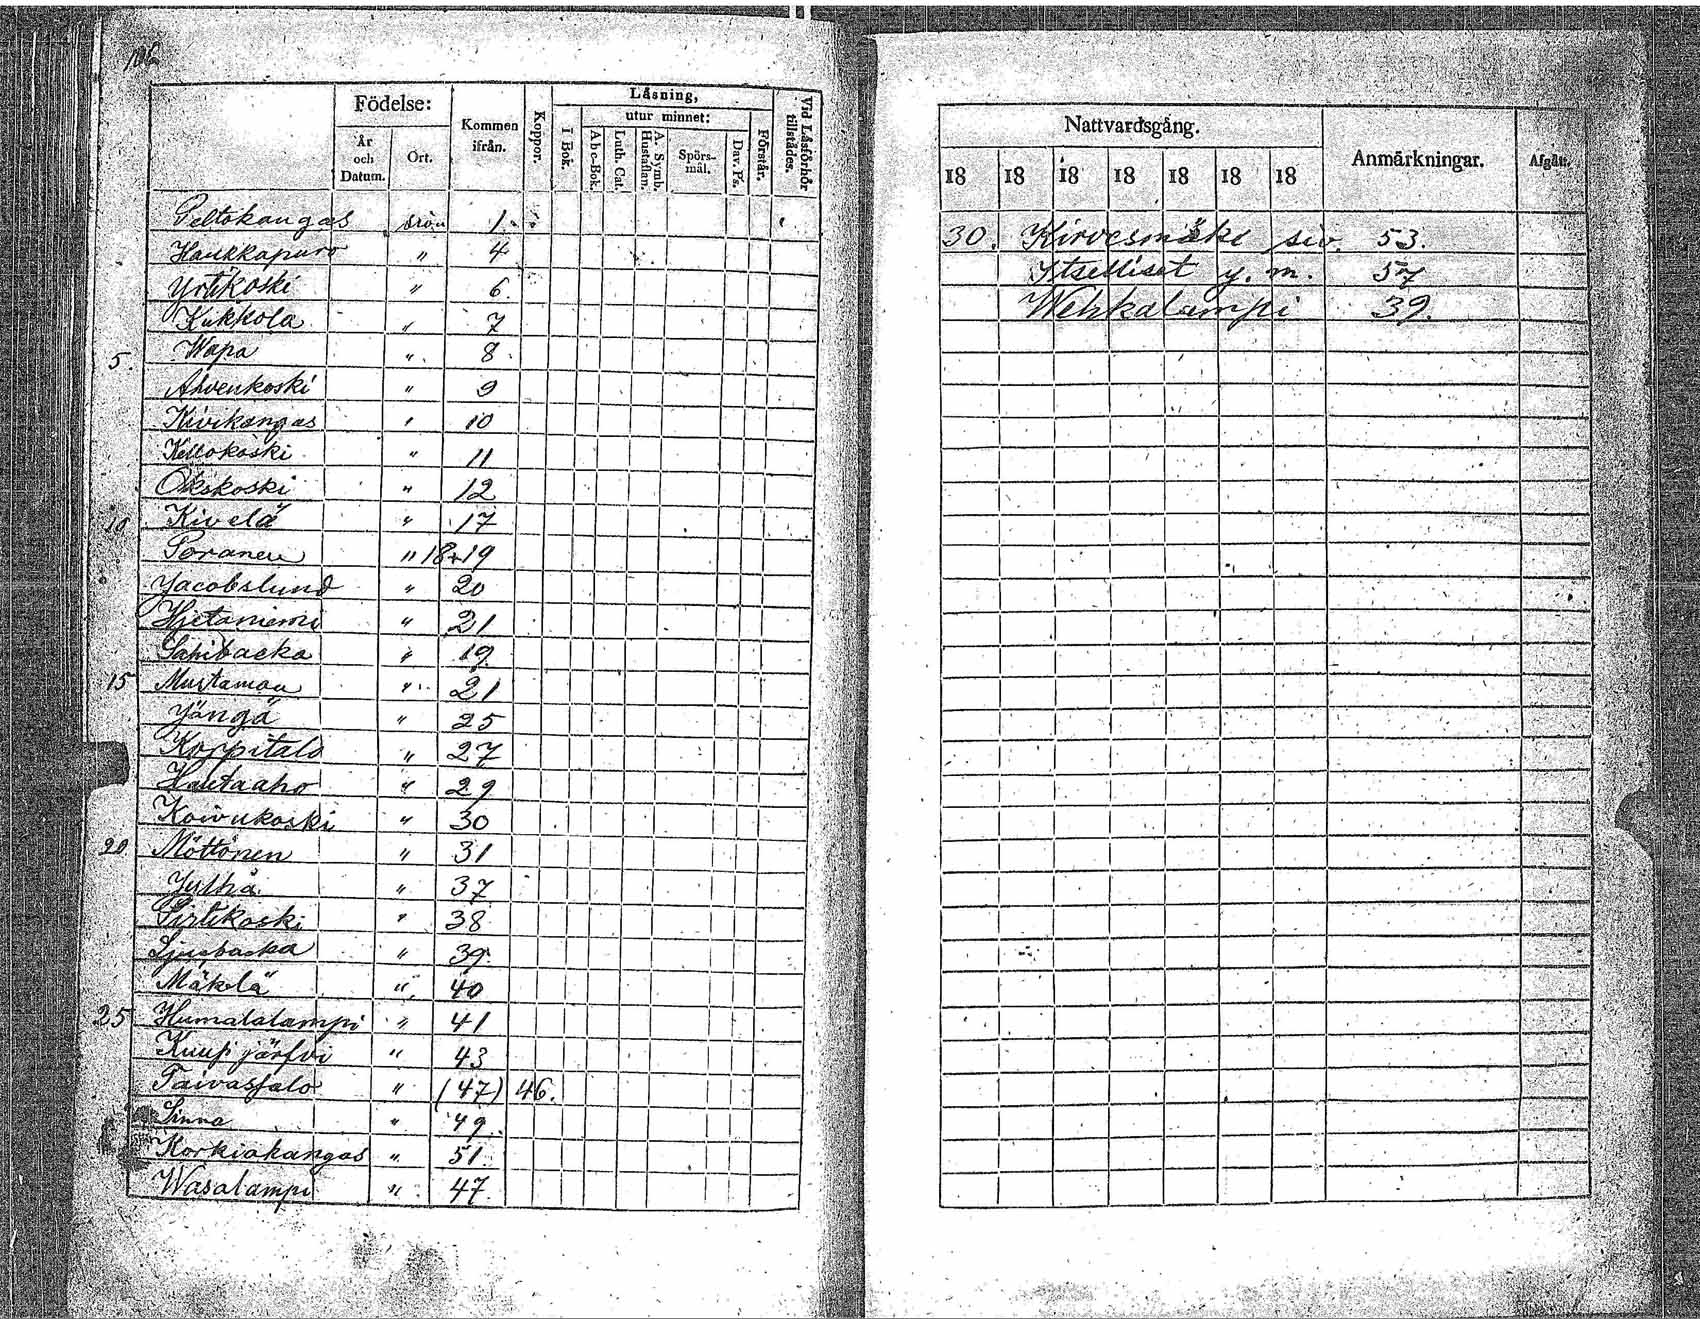 106
Födelse:
År och Datum.
Ort.
Kommen ifrån.
Koppor.
Låsning,
utur minnet:
I Bok.
Abc-Bok.
Luth. Cat.
A. Symb. Hustaflan.
Spörs-mål.
Dav. Ps.
Förstår.
Vid Läsförhör tillstädes.
Peltokangas 1.
Haukkapuro " 4
Yrtikoski " 6
Kukkola " 7
5. Wapa " 8
Ahvenkoski " 9
Kivikangas " 10
Kellokoski " 11
Okskoski " 12
10 Kivelä " 17
Poranen " 18+19
Jacobslund " 20
Hietaniemi " 21
Sahibacka " 19
15 Mustamaa " 21
Jängä " 25
Korpitalo " 27
Hautaaho " 29
Koivukoski " 30
20 Möttönen " 31
Jylhä " 37
Pirtikoski " 38
Ljusbacka " 39
Mäkelä " 40
25 Humalalampi " 41
Kuup järfvi " 43
Taivassalo " (47) 46.
Linna " 49
Korkiakangas " 51
Wasalampi " 47
Nattvardsgång.
Anmärkningar.
Afgått.
18 18 18 18 18 18 18
30. Kirvesmäki siv. 53.
Itselliset y. m. 57
Wehkalampi 39.